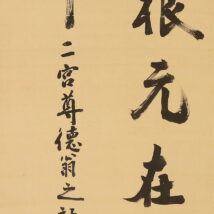 根元在
二宮尊德翁之